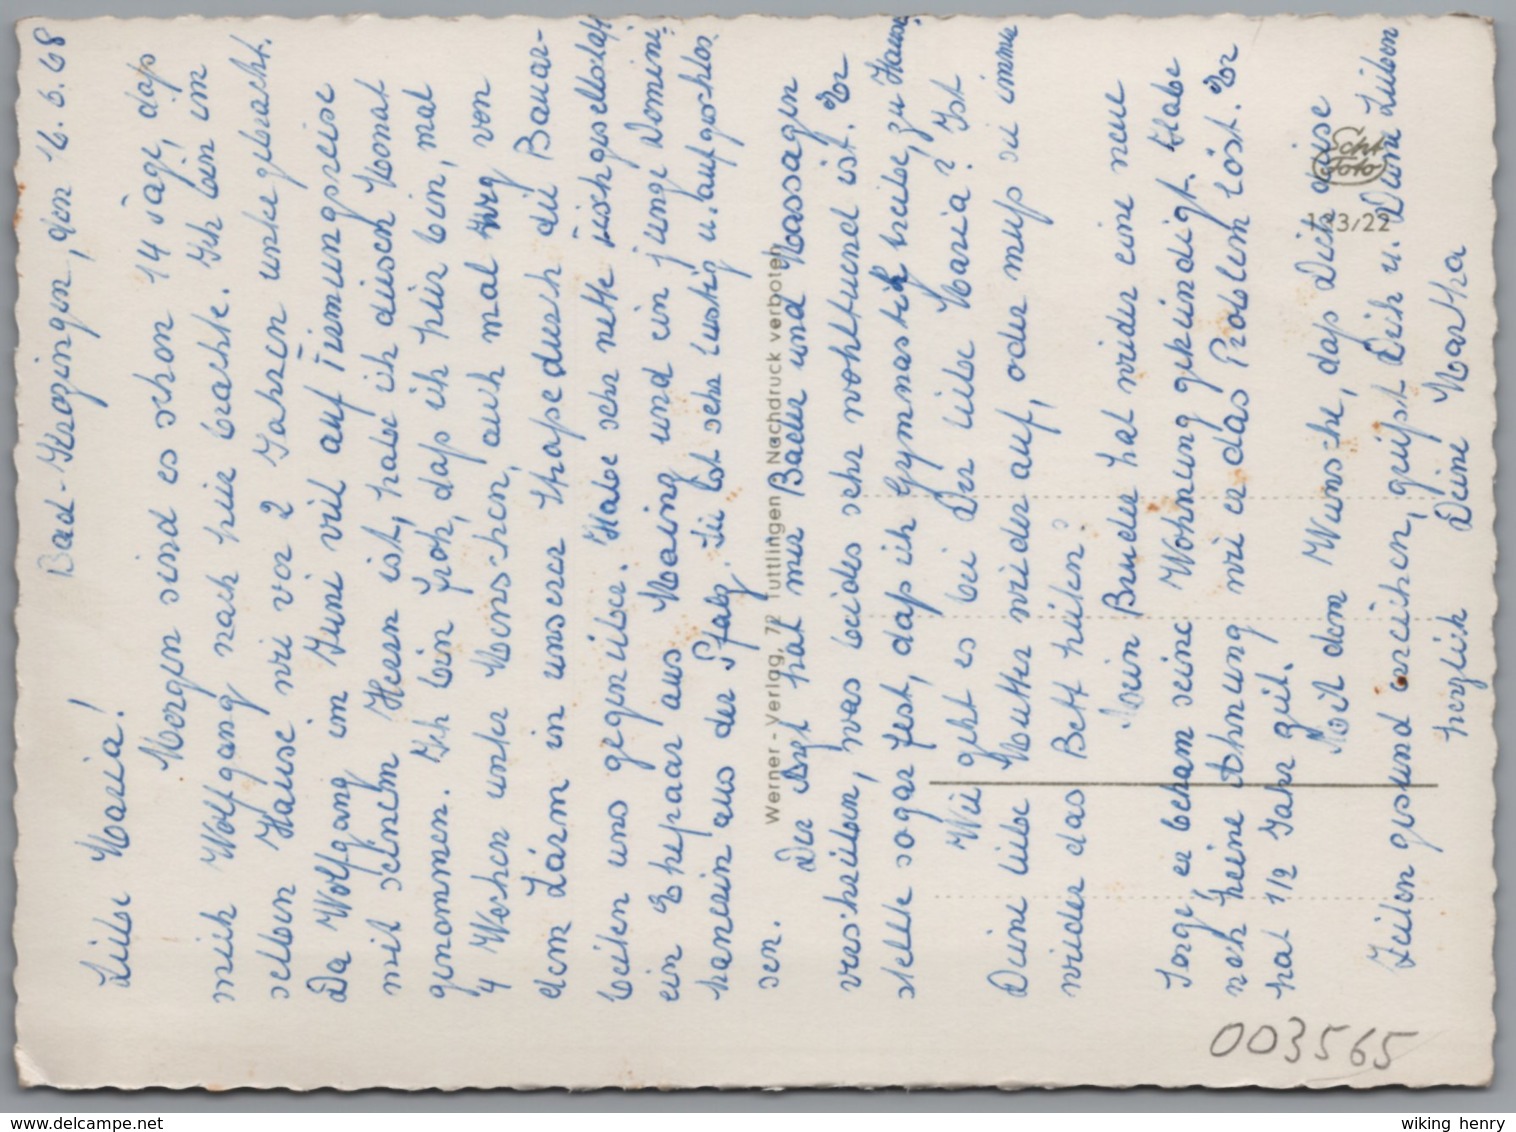 Bad-Krozingen, den 16.6.68
Liebe Maria!
Morgen sind es schon 14 Tage, daß
mich Wolfgang nach hier brachte. Ich bin im
selben Hause wie vor 2 Jahren untergebracht.
Da Wolfgang im Juni viel auf
mit seinem Herrn ist, habe ich diesen Monat
genommen. Ich bin froh, daß ich hier bin, mal
4 Wochen unter Menschen, auch mal weg von
dem Lärm in unserer Straße durch die Bauar-
beiten uns gegenüber. Habe sehr nette Tischgesellschaft
ein Ehepaar aus Mainz und ein junge Domini-
kanerin aus der Pfalz. Sie ist sehr lustig u. aufgeschlos-
sen.
Der Arzt hat mir Bäder und Massagen
verschrieben, was beides sehr wohltuend ist. Er
stellte sogar fest, daß ich Gymnastik treibe, zu Hause.
Wie geht es bei Dir liebe Maria? Ist
Deine liebe Mutter wieder auf, oder muß sie immer
wieder das Bett hüten?
Mein Bruder hat wieder eine neue
Sorge er bekam seine Wohnung gekündigt. Habe
noch keine Ahnung wie er das Problem löst. Er
hat 1/2 Jahr Zeit.
Mit dem Wunsche, daß Dich diese
Zeilen gesund erreichen, grüßt Dich u. Deine Lieben
herzlich Deine Martha
Werner-Verlag, 72 Tuttlingen Nachdruck verboten
Echt
Foto
113/22
003565
wiking henry